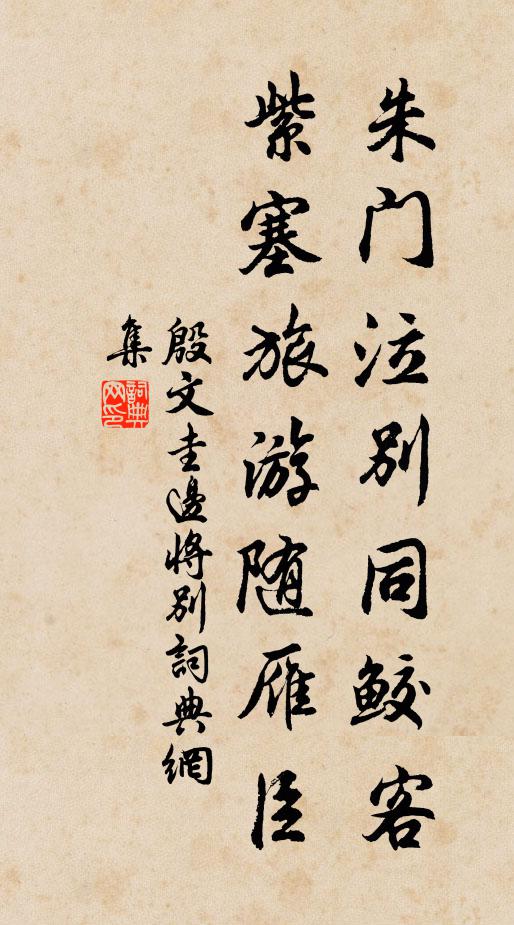 朱门泣别同鲛客
紫塞旅游随雁臣
殷文圭邊将别詞典網
集
詞典网印